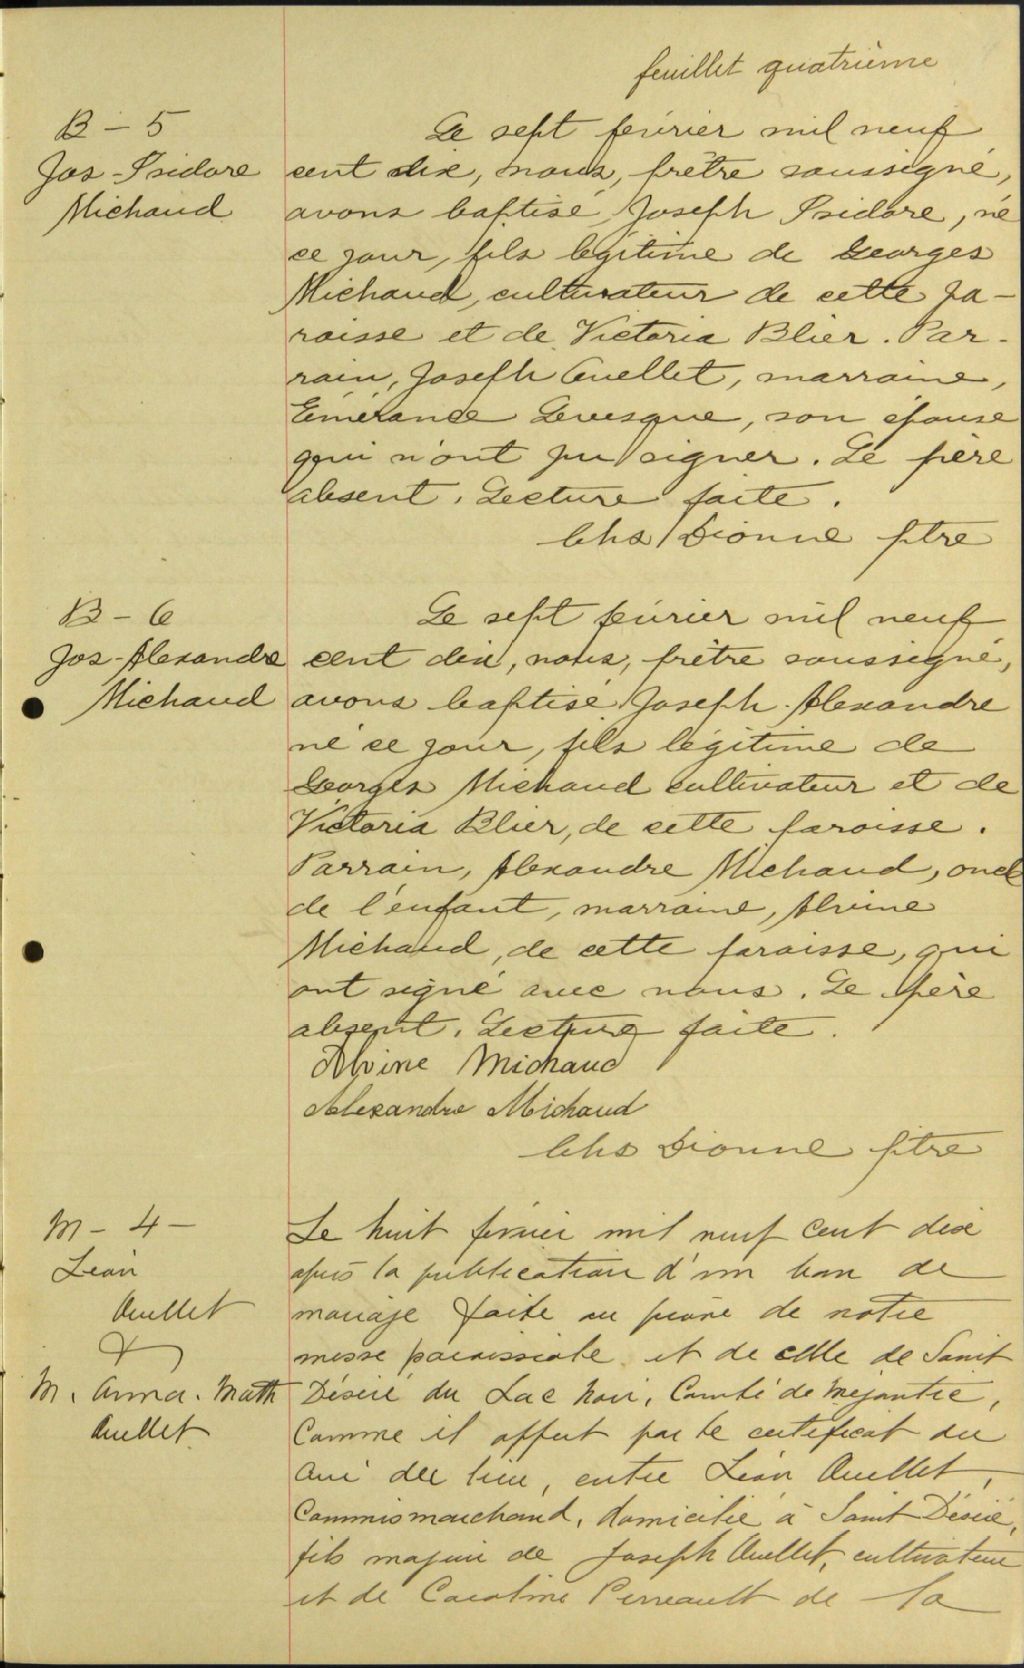 feuillet quatrième
B - 5
Jos-Isidore
Michaud
Le sept février mil neuf
cent dix, nous, prêtre soussigné,
avons baptisé Joseph Isidore, né
ce jour, fils légitime de Georges
Michaud, cultivateur de cette pa-
roisse et de Victoria Blier. Par-
rain, Joseph Ouellet, marraine,
Émérance Levesque, son épouse
qui n'ont pu signer. Le père
absent. Lecture faite.
Chs Dionne ptre
B - 6
Jos-Alexandre
Michaud
Le sept février mil neuf
cent dix, nous, prêtre soussigné,
avons baptisé Joseph-Alexandre
né ce jour, fils légitime de
Georges Michaud cultivateur et de
Victoria Blier, de cette paroisse.
Parrain, Alexandre Michaud, oncle
de l'enfant, marraine, Alvine
Michaud, de cette paroisse, qui
ont signé avec nous. Le père
absent. Lecture faite.
Alvine Michaud
Alexandre Michaud
Chs Dionne ptre
M - 4 -
Léon
Ouellet
&
M. Anna. Math
Ouellet
Le huit février mil neuf cent dix
après la publication d'un ban de
mariage faite au prône de notre
messe paroissiale et de celle de Saint
Désiré du Lac Noir, Comté de Mégantic,
Comme il appert par le certificat du
Curé du lieu, entre Léon Ouellet,
Commis marchand, domicilié à Saint Désiré,
fils majeur de Joseph Ouellet, cultivateur
et de Caroline Perreault de la